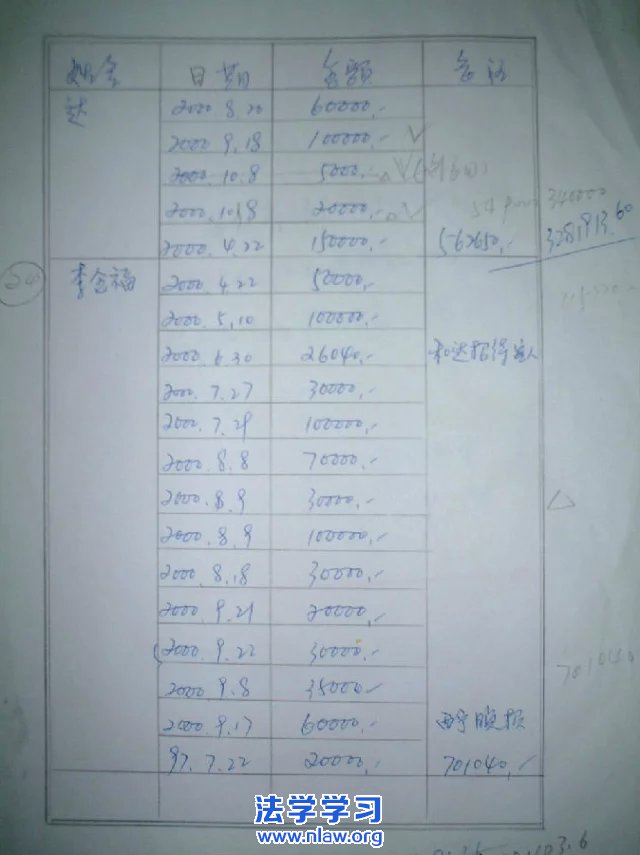 现金 日期 金额 备注
达 2000.8.20 60000.-
2000.9.18 100000.- √
2000.10.8 5000.- √
2000.10.8 20000.- √ 340000
2000.4.22 150000.- 562650.- 3281913.60
李金福 2000.4.22 50000.-
2000.5.10 100000.-
2000.6.30 26040.-
2000.7.27 30000.-
2000.7.29 100000.-
2000.8.8 70000.-
2000.8.9 30000.-
2000.8.9 100000.-
2000.8.18 30000.-
2000.9.21 20000.-
2000.9.22 30000.-
701040
2000.9.8 35000.-
2000.9.17 60000.- 西宁晚报
97.7.22 20000.- 701040.-
法学学习
www.nlaw.org